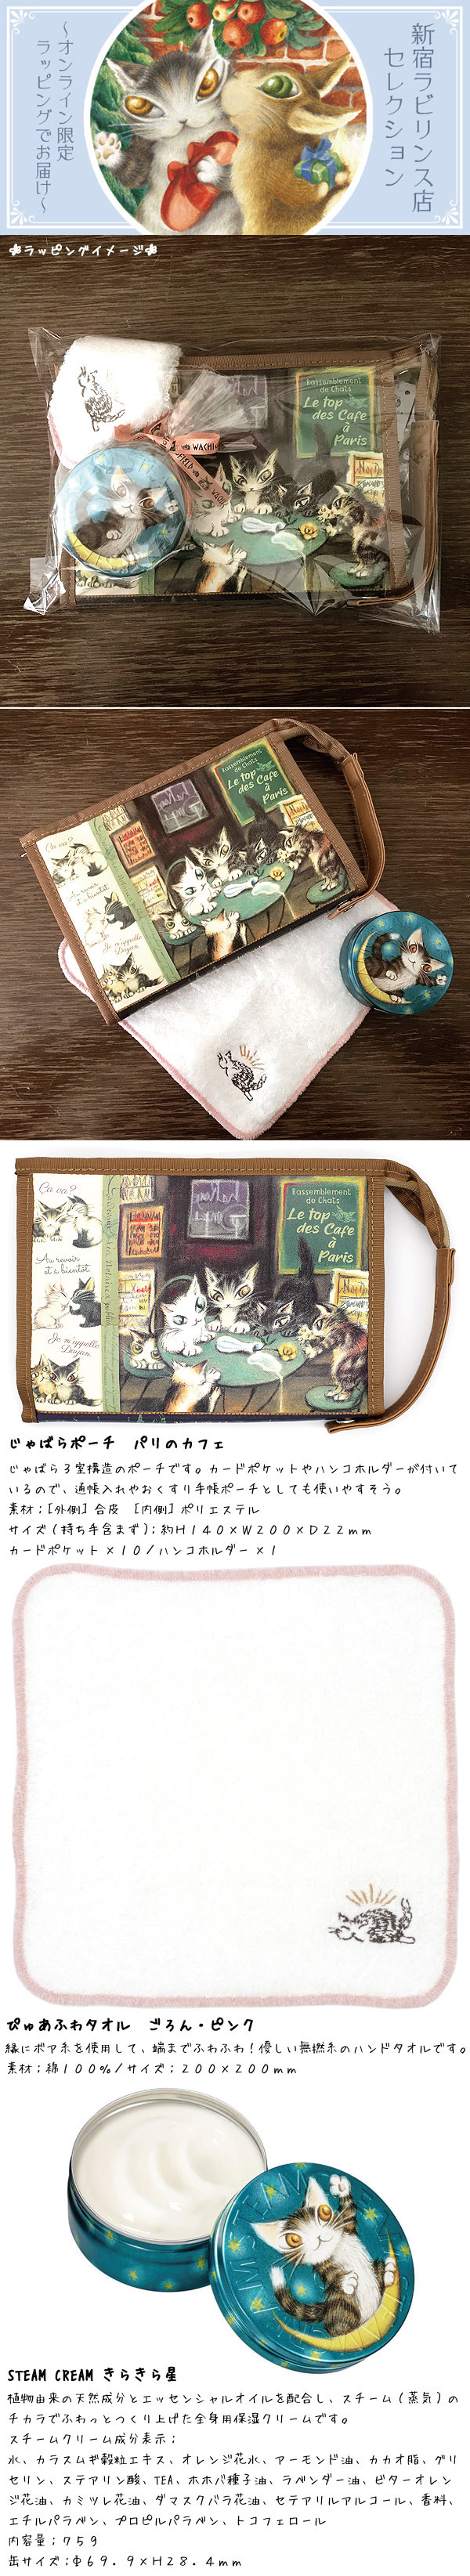 新宿ラビリンス店
セレクション
～オンライン限定
ラッピングでお届け～
ラッピングイメージ
Rassemblement
de Chats
Le top
des Cafe
à
Paris
WACHI
FIELD
Rassemblement
de Chats
Le top
des Cafe
à
Paris
Ça va?
Au revoir
et à bientôt
Je m'appelle
Dayan.
Rassemblement
de Chats
Le top
des Cafe
à
Paris
Ça va?
Au revoir
et à bientôt
Je m'appelle
Dayan.
じゃばらポーチ　パリのカフェ
じゃばら３室構造のポーチです。カードポケットやハンコホルダーが付いて
いるので、通帳入れやおくすり手帳ポーチとしても使いやすそう。
素材；[外側] 合皮　[内側] ポリエステル
サイズ（持ち手含まず）；約Ｈ１４０×Ｗ２００×Ｄ２２ｍｍ
カードポケット×１０／ハンコホルダー×１
ぴゅあふわタオル　ごろん・ピンク
縁にボア糸を使用して、端までふわふわ！優しい無撚糸のハンドタオルです。
素材；綿１００％／サイズ；２００×２００ｍｍ
STEAM CREAM きらきら星
植物由来の天然成分とエッセンシャルオイルを配合し、スチーム（蒸気）の
チカラでふわっとつくり上げた全身用保湿クリームです。
スチームクリーム成分表示；
水、カラスムギ穀粒エキス、オレンジ花水、アーモンド油、カカオ脂、グリ
セリン、ステアリン酸、TEA、ホホバ種子油、ラベンダー油、ビターオレン
ジ花油、カミツレ花油、ダマスクバラ花油、セテアリルアルコール、香料、
エチルパラベン、プロピルパラベン、トコフェロール
内容量；７５ｇ
缶サイズ；Φ６９．９×Ｈ２８．４ｍｍ